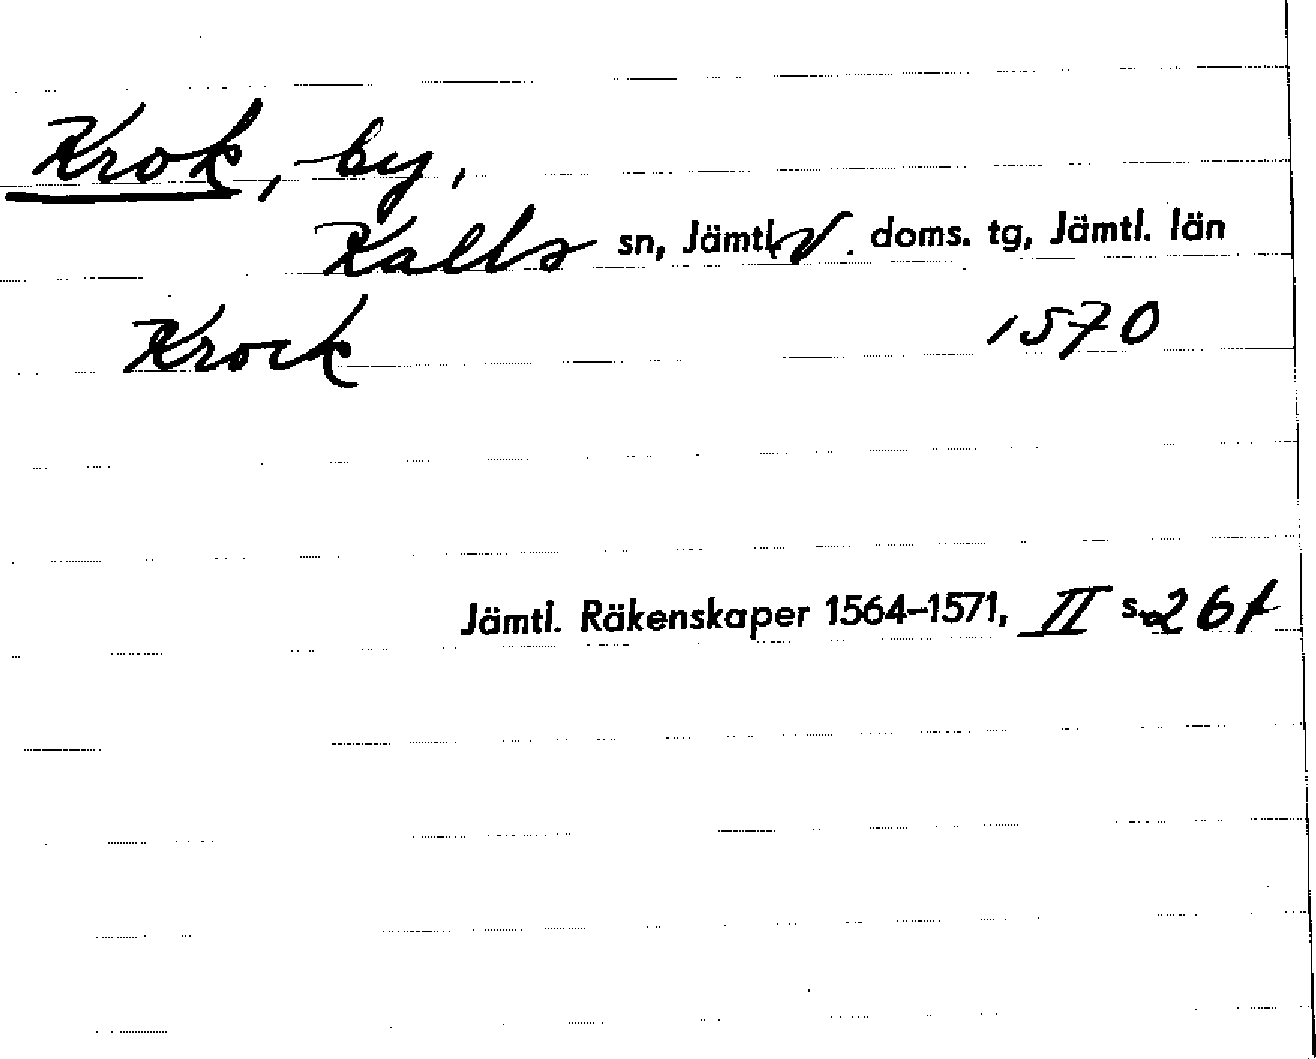 Krok, by,
Kalls sn, Jämtl. V. doms. tg, Jämtl. län
Krock 1570
Jämtl. Räkenskaper 1564–1571, II s. 26f